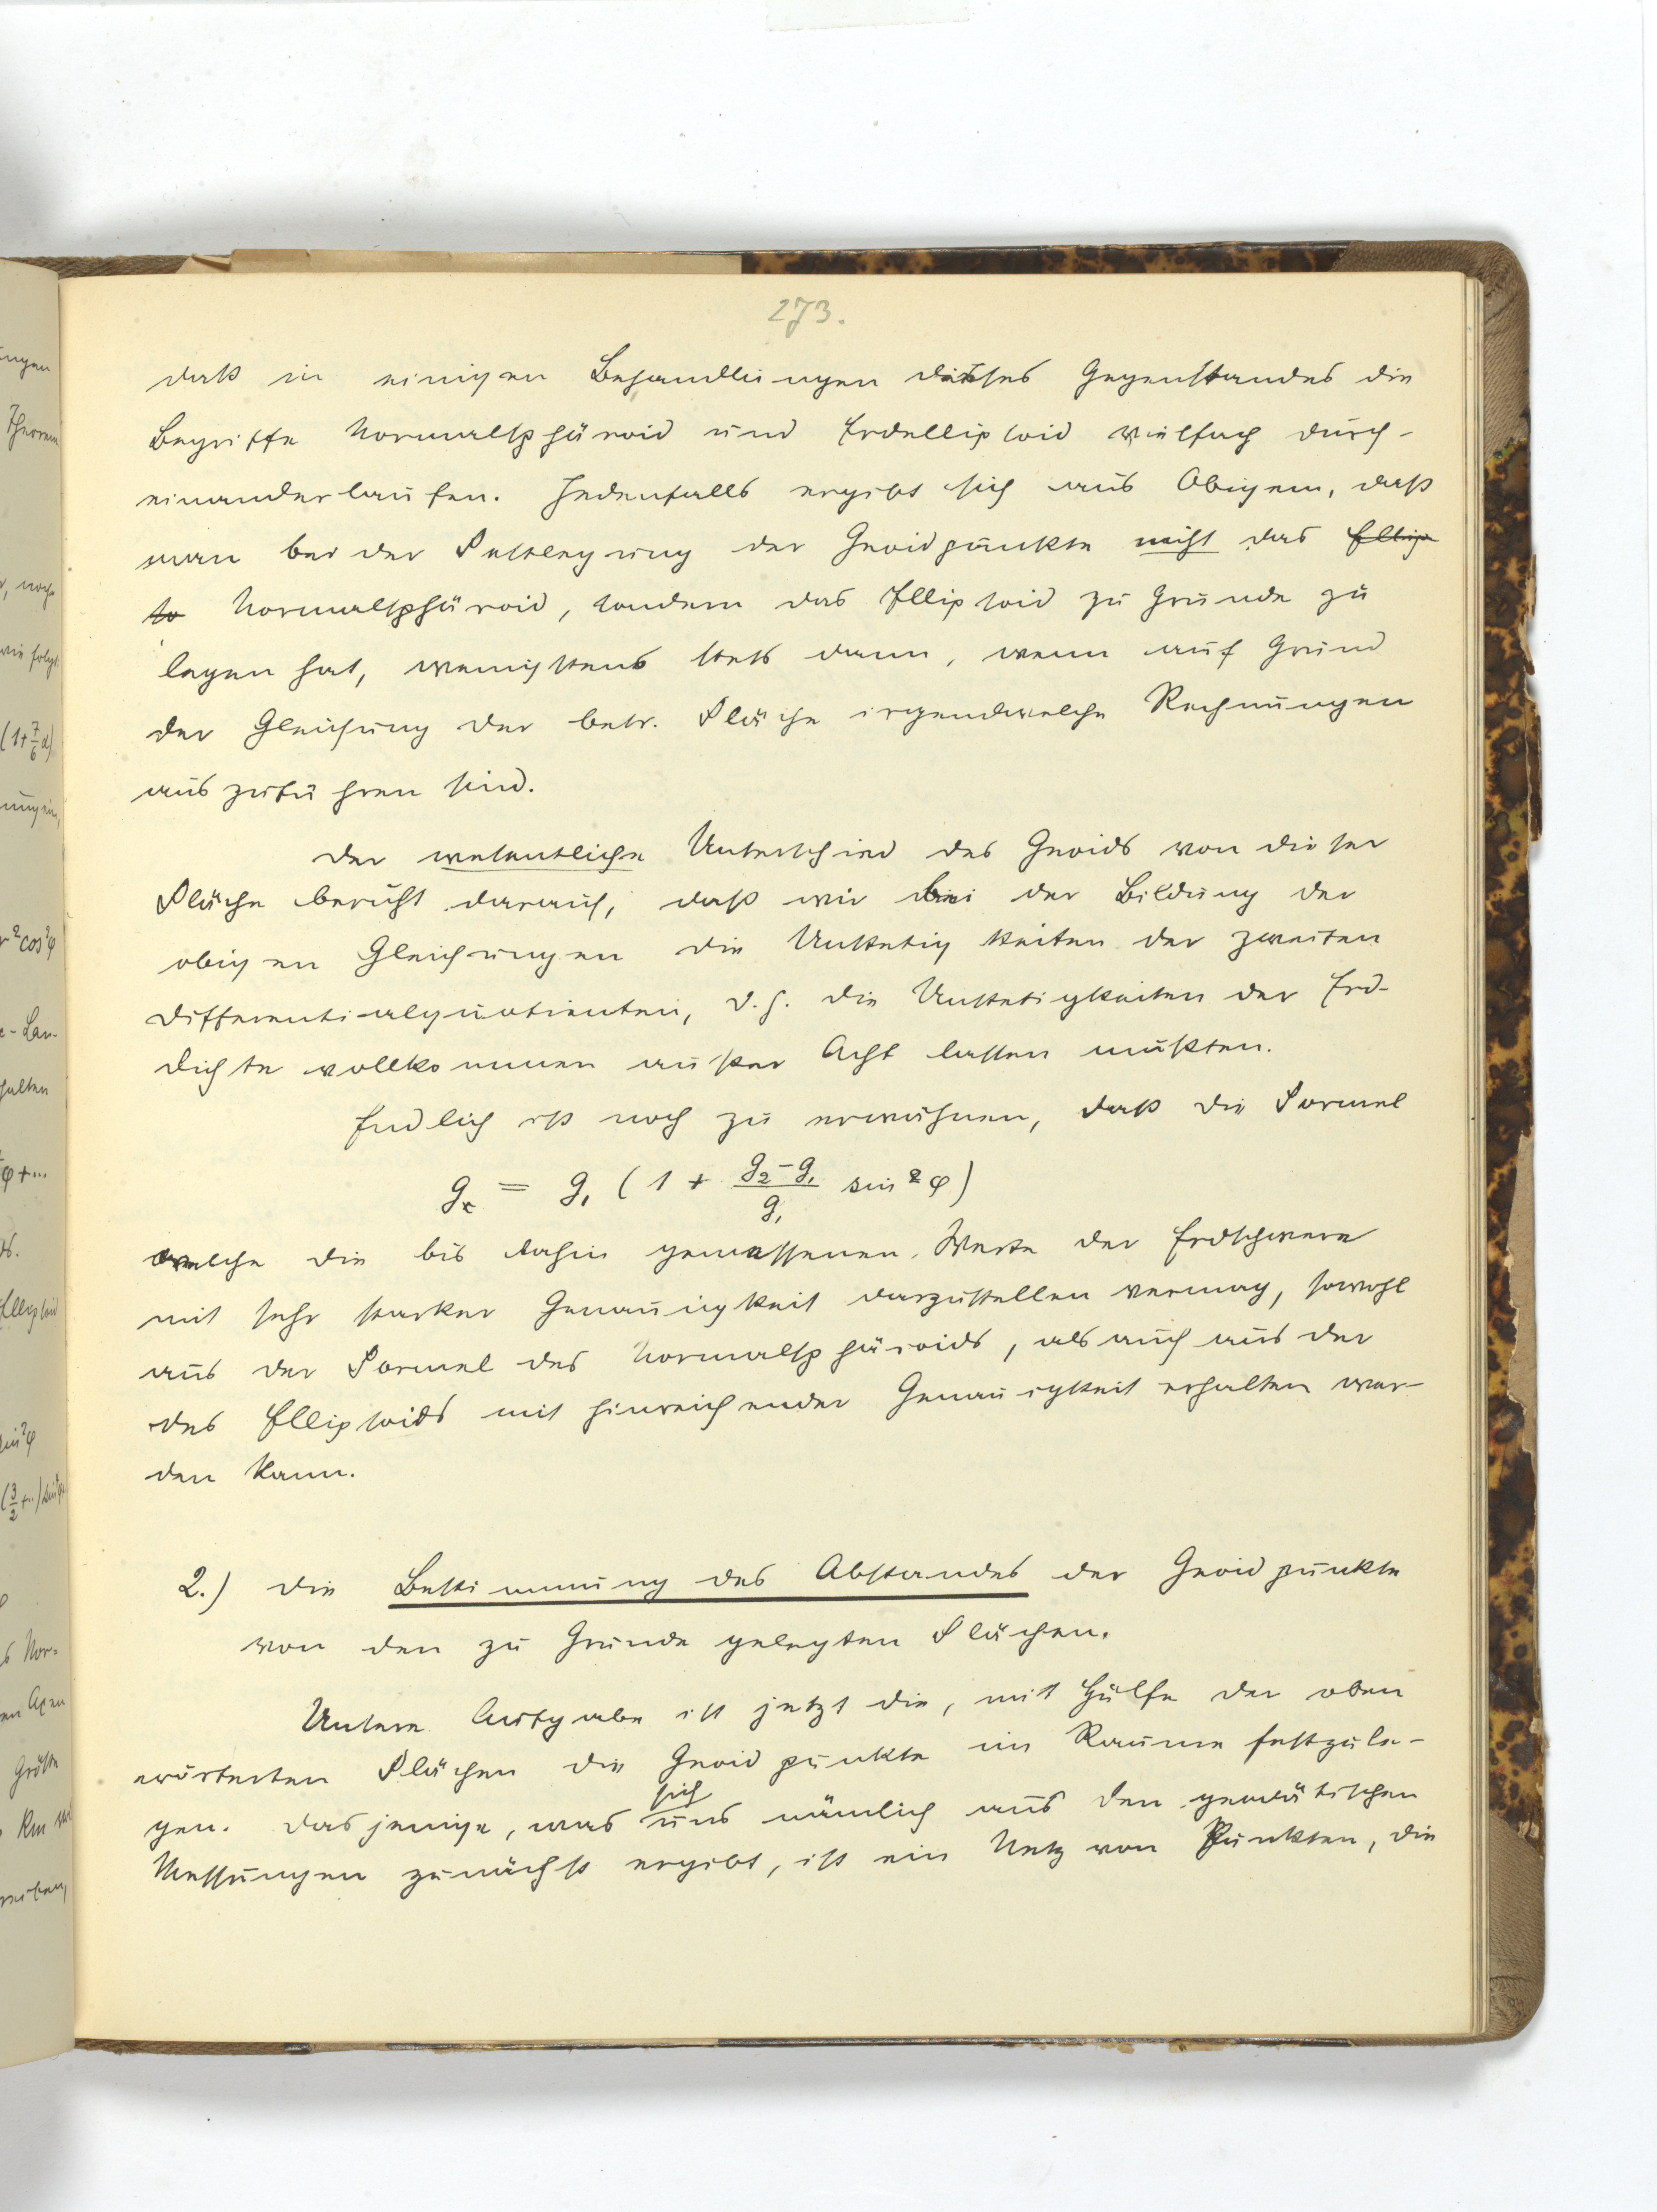 273.
daß in einigen Behandlungen dieses Gegenstandes die
Begriffe Normalsphäroid und Erdellipsoid vielfach durch-
einanderlaufen. Jedenfalls ergibt sich aus Obigem, daß
man bei der Festlegung der Geoidpunkte nicht das Ellip
so Normalsphäroid, sondern das Ellipsoid zu Grunde zu
legen hat, wenigstens stets dann, wenn auf Grund
der Gleichung der betr. Fläche irgendwelche Rechnungen
auszuführen sind.
Der wesentliche Unterschied des Geoids von dieser
Fläche beruht darauf, daß wir bei der Bildung der
obigen Gleichungen die Unstetigkeiten der zweiten
Differentialquotienten, d.h. die Unstetigkeiten der Erd-
dichte vollkommen außer Acht lassen mußten.
Endlich ist noch zu erwähnen, daß die Formel
g = g₁ (1 + (g₂ - g₁)/g₁ sin² φ)
welche die bis dahin gemessenen Werte der Erdschwere
mit sehr starker Genauigkeit darzustellen vermag, sowohl
aus der Formel des Normalsphäroids, als auch aus der
des Ellipsoids mit hinreichender Genauigkeit erhalten wer-
den kann.
2.) Die Bestimmung des Abstandes der Geoidpunkte
von den zu Grunde gelegten Flächen.
Unsere Aufgabe ist jetzt die, mit Hülfe der oben
erörterten Flächen die Geoidpunkte im Raume festzule-
gen. Dasjenige, was sich uns nämlich aus den geodätischen
Messungen zunächst ergibt, ist ein Netz von Punkten, die